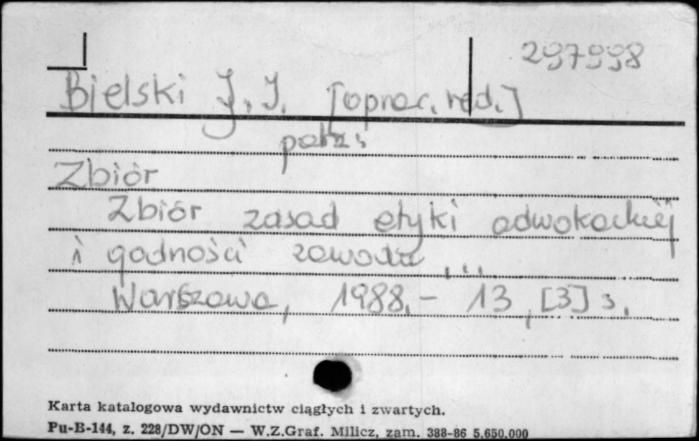 297998
Bielski J. J. [oprac. red.]
patrz:
Zbiór
Zbiór zasad etyki adwokackiej
i godności zawodu ...
Warszawa, 1988. - 13, [3] s.
Karta katalogowa wydawnictw ciągłych i zwartych.
Pu-B-144, z. 228/DW/ON — W.Z.Graf. Milicz, zam. 388-86 5.650.000